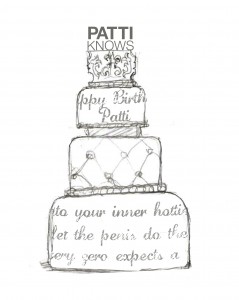 PATTI
KNOWS
ppy Birth
Patti
to your inner hotti
let the penis do the
ery zero expects a